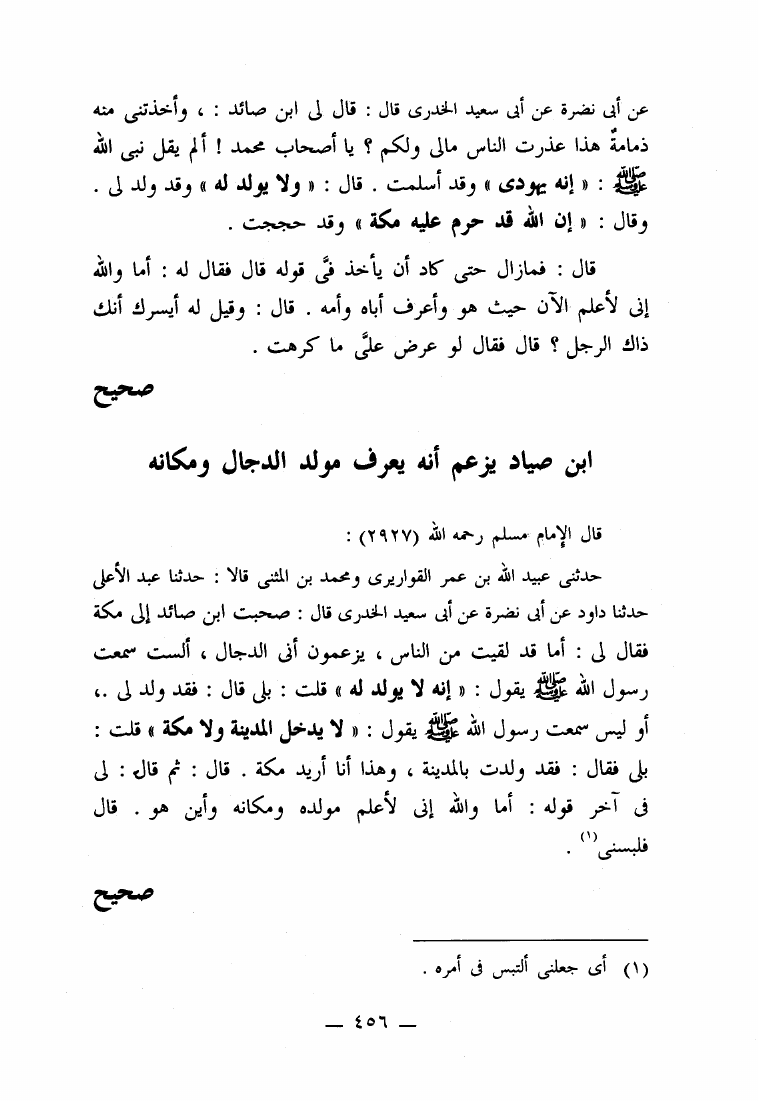 عن أبى نضرة عن أبى سعيد الخدرى قال : قال لى ابن صائد : ، وأخذتنى منه
ذمامةٌ هذا عذرت الناس مالى ولكم ؟ يا أصحاب محمد ! ألم يقل نبى الله
ﷺ : « إنه يهودى » وقد أسلمت . قال : « ولا يولد له » وقد ولد لى .
وقال : « إن الله قد حرم عليه مكة » وقد حججت .
قال : فمازال حتى كاد أن يأخذ فىَّ قوله قال فقال له : أما والله
إنى لأعلم الآن حيث هو وأعرف أباه وأمه . قال : وقيل له أيسرك أنك
ذاك الرجل ؟ قال فقال لو عرض علىَّ ما كرهت .
صحيح
ابن صياد يزعم أنه يعرف مولد الدجال ومكانه
قال الإمام مسلم رحمه الله (٢٩٢٧) :
حدثنى عبيد الله بن عمر القواريرى ومحمد بن المثنى قالا : حدثنا عبد الأعلى
حدثنا داود عن أبى نضرة عن أبى سعيد الخدرى قال : صحبت ابن صائد إلى مكة
فقال لى : أما قد لقيت من الناس ، يزعمون أنى الدجال ، ألست سمعت
رسول الله ﷺ يقول : « إنه لا يولد له » قلت : بلى قال : فقد ولد لى .،
أو ليس سمعت رسول الله ﷺ يقول : « لا يدخل المدينة ولا مكة » قلت :
بلى فقال : فقد ولدت بالمدينة ، وهذا أنا أريد مكة . قال : ثم قال : لى
فى آخر قوله : أما والله إنى لأعلم مولده ومكانه وأين هو . قال
فلبسنى(١) .
صحيح
(١) أى جعلنى ألتبس فى أمره .
— ٤٥٦ —